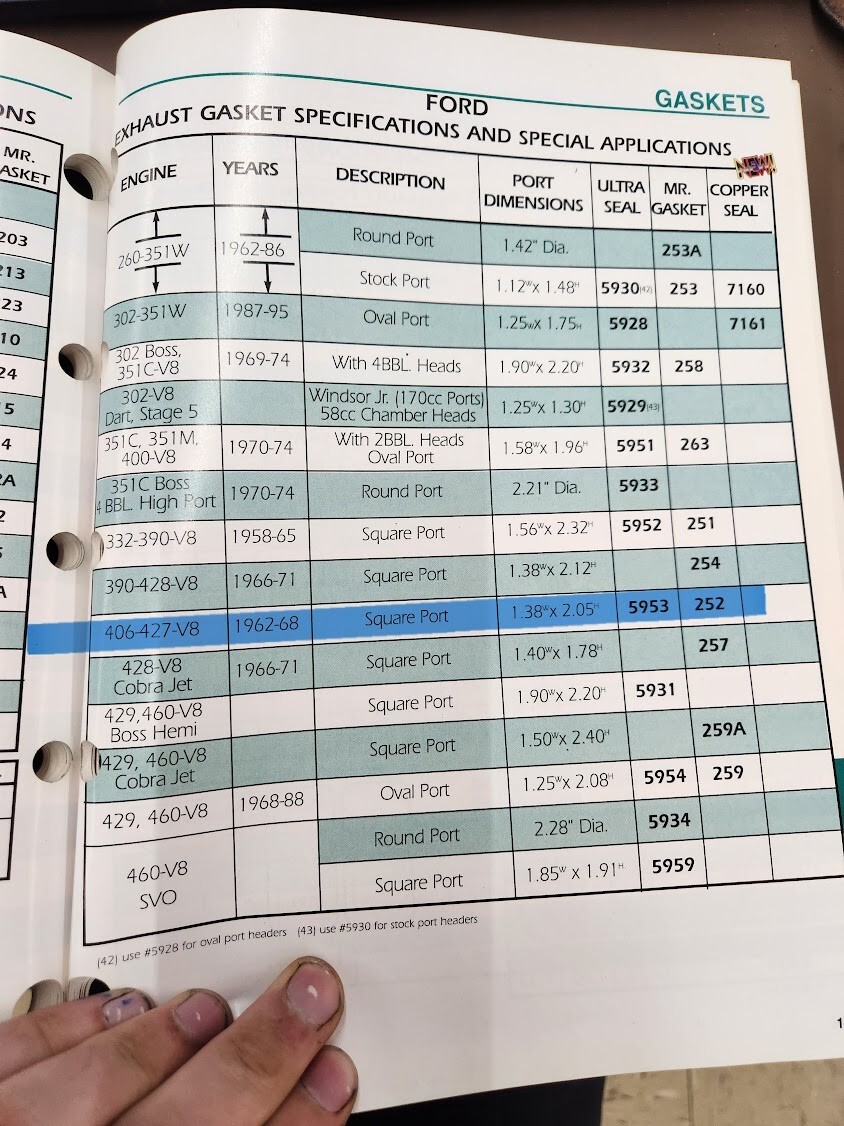 ONS
MR.
ASKET
203
213
23
10
24
5
4
2A
2
A
GASKETS
FORD
EXHAUST GASKET SPECIFICATIONS AND SPECIAL APPLICATIONS
NEW!!
ENGINE YEARS DESCRIPTION PORT DIMENSIONS ULTRA SEAL MR. GASKET COPPER SEAL
260-351W 1962-86 Round Port 1.42" Dia. 253A
Stock Port 1.12ᵂx 1.48ᴴ 5930(42) 253 7160
302-351W 1987-95 Oval Port 1.25wX 1.75H 5928 7161
302 Boss, 351C-V8 1969-74 With 4BBL. Heads 1.90ᵂx 2.20ᴴ 5932 258
302-V8 Dart, Stage 5 Windsor Jr. (170cc Ports) 58cc Chamber Heads 1.25ᵂx 1.30ᴴ 5929(43)
351C, 351M, 400-V8 1970-74 With 2BBL. Heads Oval Port 1.58ᵂx 1.96ᴴ 5951 263
351C Boss 4 BBL. High Port 1970-74 Round Port 2.21" Dia. 5933
332-390-V8 1958-65 Square Port 1.56ᵂx 2.32ᴴ 5952 251
390-428-V8 1966-71 Square Port 1.38ᵂx 2.12ᴴ 254
406-427-V8 1962-68 Square Port 1.38ᵂx 2.05ᴴ 5953 252
428-V8 Cobra Jet 1966-71 Square Port 1.40ᵂx 1.78ᴴ 257
429,460-V8 Boss Hemi Square Port 1.90ᵂx 2.20ᴴ 5931
429, 460-V8 Cobra Jet Square Port 1.50ᵂx 2.40ᴴ 259A
429, 460-V8 1968-88 Oval Port 1.25ᵂx 2.08ᴴ 5954 259
460-V8 SVO Round Port 2.28" Dia. 5934
Square Port 1.85ᵂ x 1.91ᴴ 5959
(42) use #5928 for oval port headers (43) use #5930 for stock port headers
1